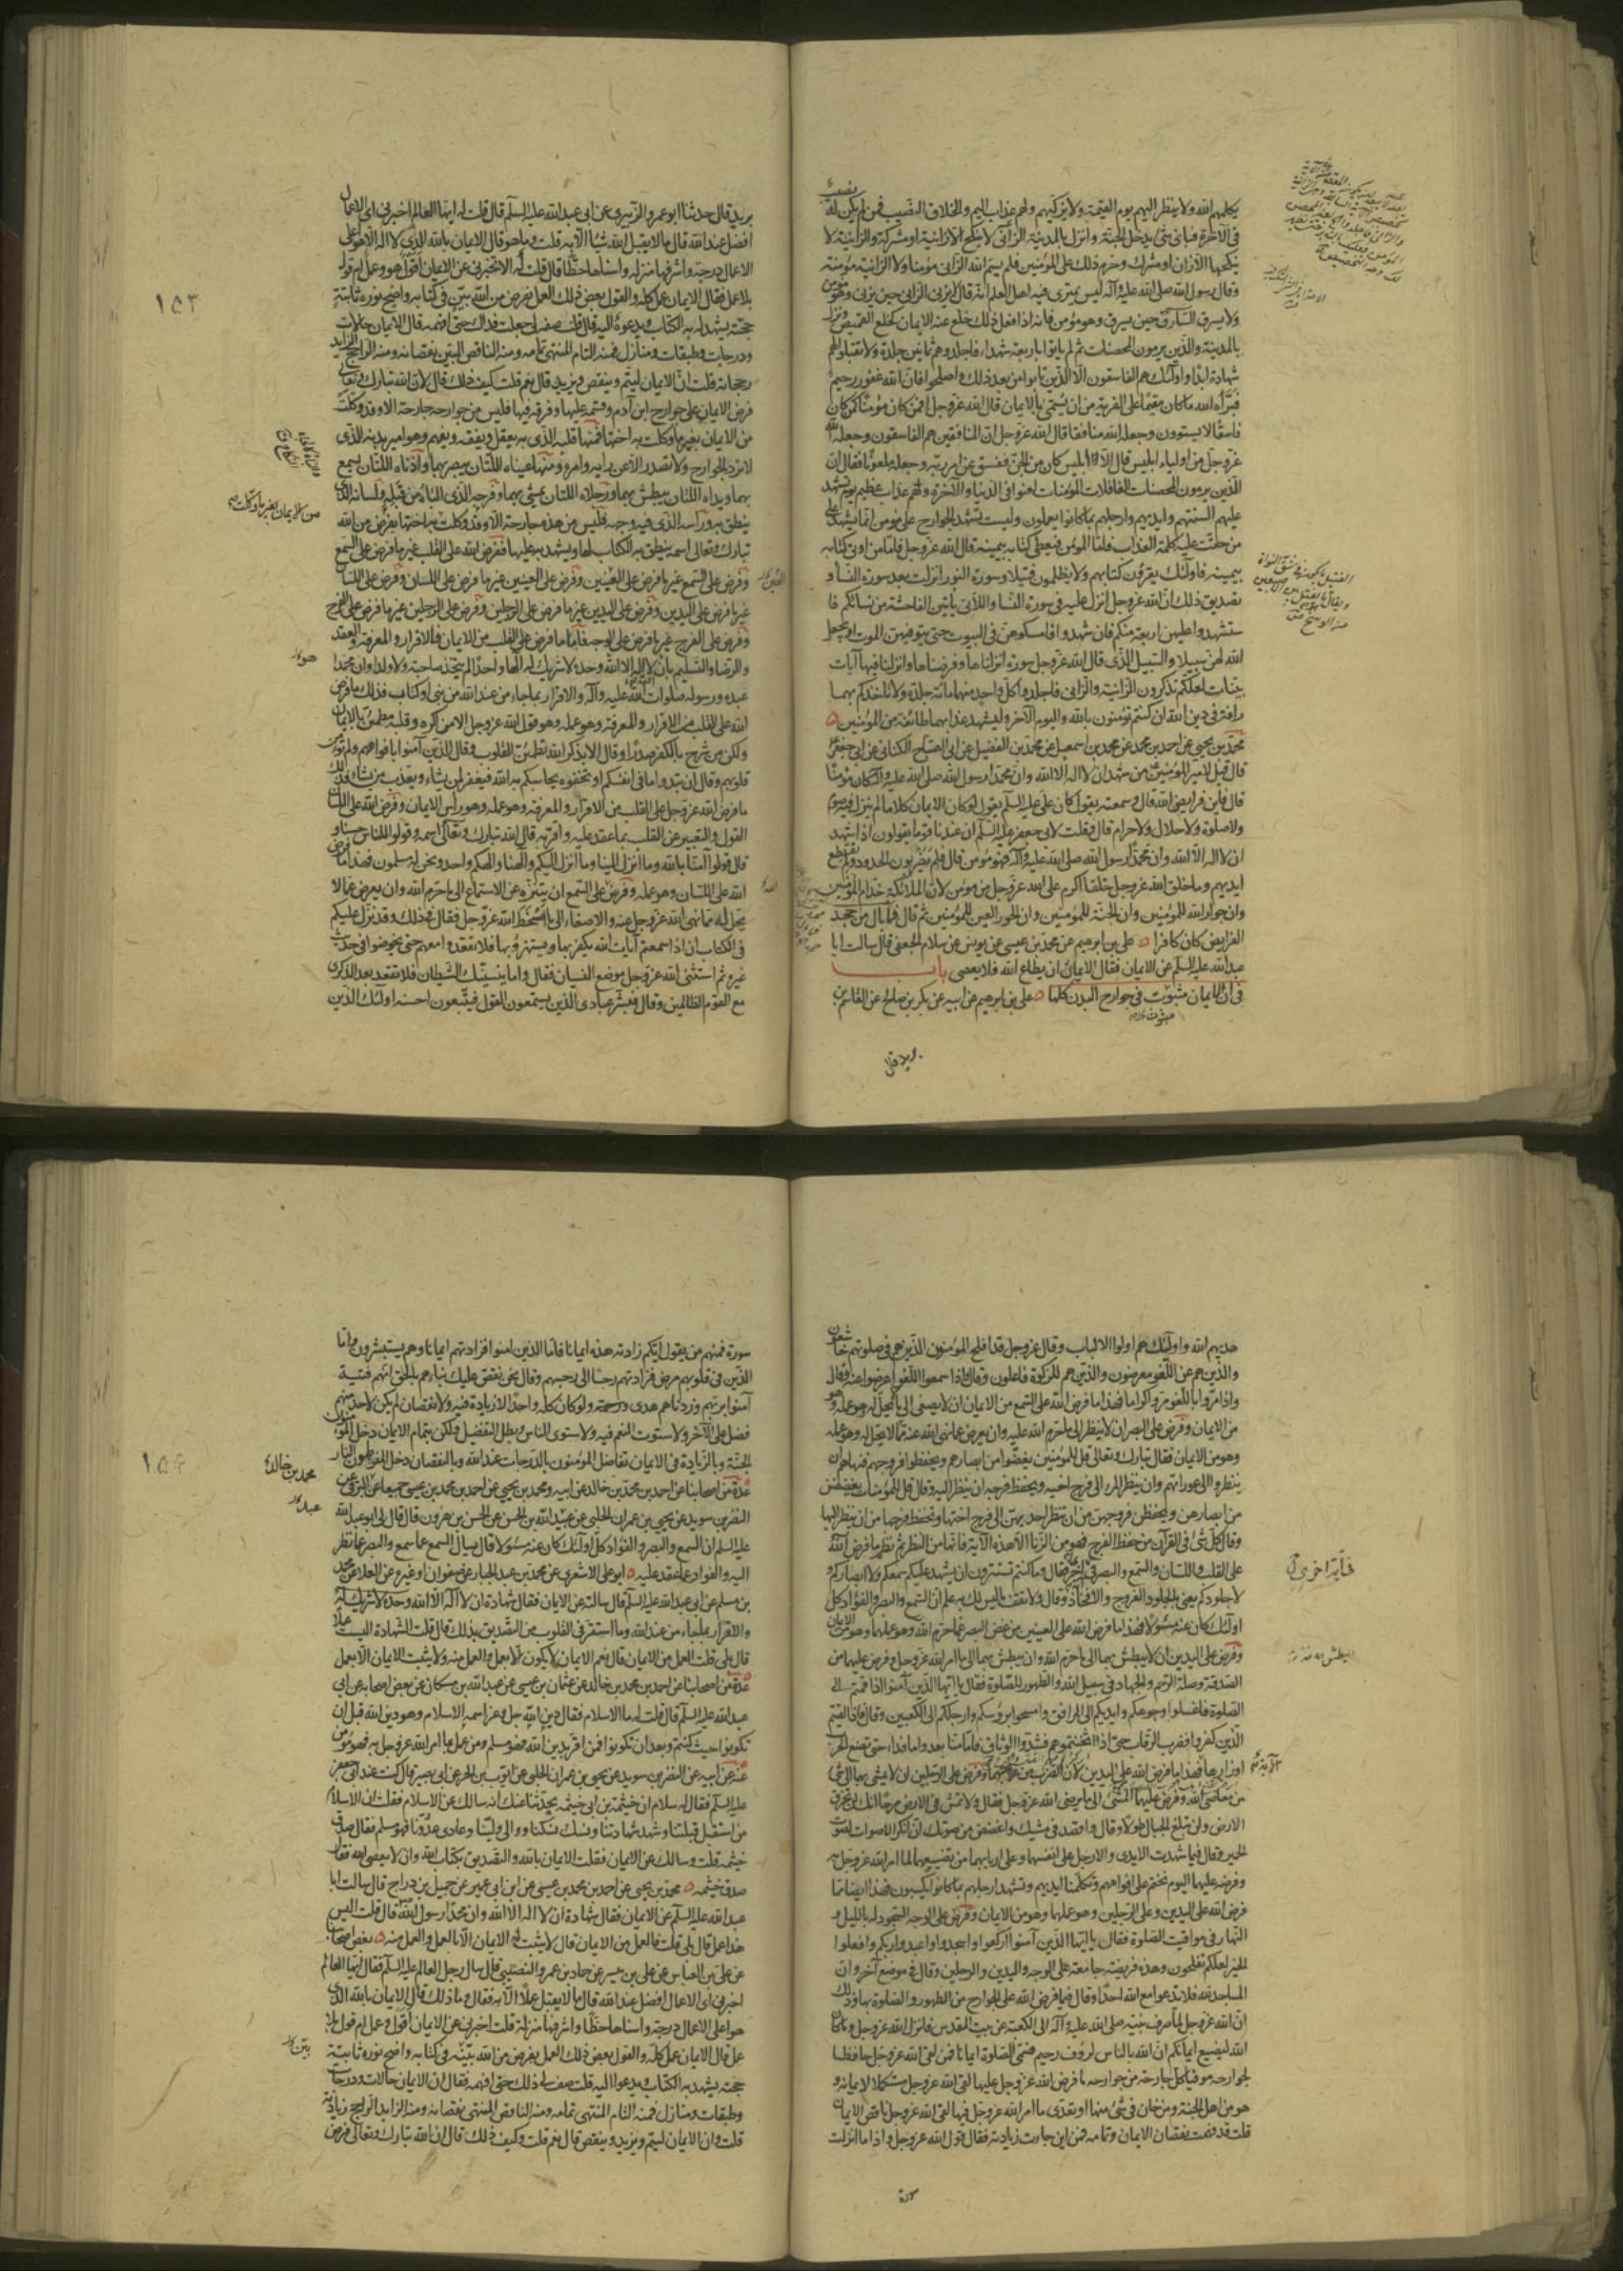 يكلمهم الله ولا ينظر اليهم يوم القيمة ولا يزكيهم ولهم عذاب اليم والخلاق النصيب فمن لم يكن له نصيب
في الآخرة فباى شئ يدخل الجنة وانزل بالمدينة الزانى لا ينكح الا زانية او مشركة والزانية لا
ينكحها الا زان او مشرك وحرم ذلك على المؤمنين فلم يسم الله الزانى مؤمنا ولا الزانية مؤمنة
وقال رسول الله صلى الله عليه وآله ليس يمترى فيه اهل العلم انه قال لا يزنى الزانى حين يزنى وهو مؤمن
ولا يسرق السارق حين يسرق وهو مؤمن فانه اذا فعل ذلك خلع عنه الايمان كخلع القميص ونزل
بالمدينة والذين يرمون المحصنات ثم لم ياتوا باربعة شهداء فاجلدوهم ثمانين جلدة ولا تقبلوا لهم
شهادة ابدا واولئك هم الفاسقون الا الذين تابوا من بعد ذلك واصلحوا فان الله غفور رحيم
فبرأه الله ما كان مقيما على الفرية من ان يسمى بالايمان قال الله عز وجل افمن كان مؤمنا كمن كان
فاسقا لا يستوون وجعله الله منافقا قال الله عز وجل ان المنافقين هم الفاسقون وجعله الله
عز وجل من اولياء ابليس قال الا ابليس كان من الجن ففسق عن امر ربه وجعله ملعونا فقال ان
الذين يرمون المحصنات الغافلات المؤمنات لعنوا في الدنيا والآخرة ولهم عذاب عظيم يوم تشهد
عليهم السنتهم وايديهم وارجلهم بما كانوا يعملون وليست تشهد الجوارح على مؤمن انما تشهد على
من حقت عليه كلمة العذاب فاما المؤمن فيعطى كتابه بيمينه قال الله عز وجل فاما من اوتى كتابه
بيمينه فاولئك يقرؤن كتابهم ولا يظلمون فتيلا وسورة النور انزلت بعد سورة النساء و
تصديق ذلك ان الله عز وجل انزل عليه في سورة النساء واللاتى ياتين الفاحشة من نسائكم فا
ستشهدوا عليهن اربعة منكم فان شهدوا فامسكوهن في البيوت حتى يتوفيهن الموت او يجعل
الله لهن سبيلا والسبيل الذى قال الله عز وجل سورة انزلناها وفرضناها وانزلنا فيها آيات
بينات لعلكم تذكرون الزانية والزانى فاجلدوا كل واحد منهما مائة جلدة ولا تاخذكم بهما
رافة في دين الله ان كنتم تؤمنون بالله واليوم الآخر وليشهد عذابهما طائفة من المؤمنين
محمد بن يحيى عن احمد بن محمد عن محمد بن اسمعيل عن محمد بن الفضيل عن ابى الصباح الكنانى عن ابى جعفر
قال قيل لامير المؤمنين من شهد ان لا اله الا الله وان محمدا رسول الله صلى الله عليه وآله كان مؤمنا
قال فاين فرايض الله قال وسمعته يقول كان على عليه السلم يقول لو كان الايمان كلاما لم ينزل فيه صوم
ولا صلوة ولا حلال ولا حرام قال وقلت لابى جعفر عليه السلم ان عندنا قوما يقولون اذا شهد
ان لا اله الا الله وان محمدا رسول الله صلى الله عليه وآله فهو مؤمن قال فلم يضربون الحدود ولم تقطع
ايديهم وما خلق الله عز وجل خلقا اكرم على الله عز وجل من مؤمن لان الملائكة خدام المؤمنين
وان جوار الله للمؤمنين وان الجنة للمؤمنين وان الحور العين للمؤمنين ثم قال فما بال من جحد
الفرايض كان كافرا على بن ابرهيم عن محمد بن عيسى عن يونس عن سلام الجعفى قال سالت ابا
عبد الله عليه السلم عن الايمان فقال الايمان ان يطاع الله فلا يعصى باب
في ان الايمان مبثوث في جوارح البدن كلها على بن ابرهيم عن ابيه عن بكر بن صالح عن القاسم بن
بريد قال
١٥٣
بريد قال حدثنا ابو عمرو الزبيرى عن ابى عبد الله عليه السلم قال قلت له ايها العالم اخبرنى اى الاعمال
افضل عند الله قال ما لا يقبل الله شيئا الا به قلت وما هو قال الايمان بالله الذى لا اله الا هو اعلى
الاعمال درجة واشرفها منزلة واسناها حظا قال قلت له الا تخبرنى عن الايمان اقول هو وعمل ام قول
بلا عمل فقال الايمان عمل كله والقول بعض ذلك العمل بفرض من الله بين في كتابه واضح نوره ثابتة
حجته يشهد له به الكتاب ويدعوه اليه قال قلت صفه لى جعلت فداك حتى افهمه قال الايمان حالات
ودرجات وطبقات ومنازل فمنه التام المنتهى تمامه ومنه الناقص البين نقصانه ومنه الراجح الزايد
رجحانه قلت ان الايمان ليتم وينقص ويزيد قال نعم قلت كيف ذلك قال لان الله تبارك وتعالى
فرض الايمان على جوارح ابن آدم وقسمه عليها وفرقه فيها فليس من جوارحه جارحة الا وقد وكلت
من الايمان بغير ما وكلت به اختها فمنها قلبه الذى به يعقل ويفقه ويفهم وهو امير بدنه الذى
لا ترد الجوارح ولا تصدر الا عن رايه وامره ومنها عيناه اللتان يبصر بهما واذناه اللتان يسمع
بهما ويداه اللتان يبطش بهما ورجلاه اللتان يمشى بهما وفرجه الذى الباه من قبله ولسانه الذى
ينطق به وراسه الذى فيه وجهه فليس من هذه جارحة الا وقد وكلت من الايمان بغير ما وكلت به اختها بفرض من الله
تبارك وتعالى اسمه ينطق به الكتاب لها ويشهد به عليها ففرض الله على القلب غير ما فرض على السمع
وفرض على السمع غير ما فرض على العينين وفرض على العينين غير ما فرض على اللسان وفرض على اللسان
غير ما فرض على اليدين وفرض على اليدين غير ما فرض على الرجلين وفرض على الرجلين غير ما فرض على الفرج
وفرض على الفرج غير ما فرض على الوجه فاما ما فرض على القلب من الايمان فالاقرار والمعرفة والعقد
والرضا والتسليم بان لا اله الا الله وحده لا شريك له الها واحدا لم يتخذ صاحبة ولا ولدا وان محمدا
عبده ورسوله صلوات الله عليه وآله والاقرار بما جاء من عند الله من نبى او كتاب فذلك ما فرض
الله على القلب من الاقرار والمعرفة وهو عمله وهو قول الله عز وجل الا من اكره وقلبه مطمئن بالايمان
ولكن من شرح بالكفر صدرا وقال الا بذكر الله تطمئن القلوب وقال الذين آمنوا بافواههم ولم تؤمن
قلوبهم وقال ان تبدوا ما في انفسكم او تخفوه يحاسبكم به الله فيغفر لمن يشاء ويعذب من يشاء فذلك
ما فرض الله عز وجل على القلب من الاقرار والمعرفة وهو عمله وهو راس الايمان وفرض الله على اللسان
القول والتعبير عن القلب بما عقد عليه واقر به قال الله تبارك وتعالى اسمه وقولوا للناس حسنا و
قال قولوا آمنا بالله وما انزل الينا وما انزل اليكم والهنا والهكم واحد ونحن له مسلمون فهذا ما فرض
الله على اللسان وهو عمله وفرض على السمع ان يتنزه عن الاستماع الى ما حرم الله وان يعرض عما لا
يحل له مما نهى الله عز وجل عنه والاصغاء الى ما اسخط الله عز وجل فقال في ذلك وقد نزل عليكم
في الكتاب ان اذا سمعتم آيات الله يكفر بها ويستهزؤ بها فلا تقعدوا معهم حتى يخوضوا في حديث
غيره ثم استثنى الله عز وجل موضع النسيان فقال واما ينسينك الشيطان فلا تقعد بعد الذكرى
مع القوم الظالمين وقال فبشر عبادى الذين يستمعون القول فيتبعون احسنه اولئك الذين
هديهم الله واولئك هم اولوا الالباب وقال عز وجل قد افلح المؤمنون الذين هم في صلوتهم خاشعون
والذين هم عن اللغو معرضون والذين هم للزكوة فاعلون وقال واذا سمعوا اللغو اعرضوا عنه وقال
واذا مروا باللغو مروا كراما فهذا ما فرض الله على السمع من الايمان ان لا يصغى الى ما لا يحل له وهو عمله وهو
من الايمان وفرض على البصر ان لا ينظر الى ما حرم الله عليه وان يعرض عما نهى الله عنه مما لا يحل له وهو عمله
وهو من الايمان فقال تبارك وتعالى قل للمؤمنين يغضوا من ابصارهم ويحفظوا فروجهم فنهاهم ان
ينظروا الى عوراتهم وان ينظر المرء الى فرج اخيه ويحفظ فرجه ان ينظر اليه وقال قل للمؤمنات يغضضن
من ابصارهن ويحفظن فروجهن من ان تنظر احديهن الى فرج اختها وتحفظ فرجها من ان ينظر اليها
وقال كل شئ في القرآن من حفظ الفرج فهو من الزنا الا هذه الآية فانها من النظر ثم نظم ما فرض الله
على القلب واللسان والسمع والبصر في آية اخرى فقال وما كنتم تستترون ان يشهد عليكم سمعكم ولا ابصاركم و
لا جلودكم يعنى بالجلود الفروج والافخاذ وقال ولا تقف ما ليس لك به علم ان السمع والبصر والفؤاد كل
اولئك كان عنه مسؤلا فهذا ما فرض الله على العينين من غض البصر عما حرم الله وهو عملهما وهو من الايمان
وفرض على اليدين ان لا يبطش بهما الى ما حرم الله وان يبطش بهما الى ما امر الله عز وجل وفرض عليهما من
الصدقة وصلة الرحم والجهاد في سبيل الله والطهور للصلوة فقال يا ايها الذين آمنوا اذا قمتم الى
الصلوة فاغسلوا وجوهكم وايديكم الى المرافق وامسحوا برؤسكم وارجلكم الى الكعبين وقال فاذا لقيتم
الذين كفروا فضرب الرقاب حتى اذا اثخنتموهم فشدوا الوثاق فاما منا بعد واما فداء حتى تضع الحرب
اوزارها فهذا ما فرض الله على اليدين لان الضرب من علاجهما وفرض على الرجلين ان لا يمشى بهما الى شئ
من معاصى الله وفرض عليهما المشى الى ما يرضى الله عز وجل فقال ولا تمش في الارض مرحا انك لن تخرق
الارض ولن تبلغ الجبال طولا وقال واقصد في مشيك واغضض من صوتك ان انكر الاصوات لصوت
الحمير وقال فيما شهدت الايدى والارجل على انفسهما وعلى اربابهما من تضييعهما لما امر الله عز وجل به
وفرضه عليهما اليوم نختم على افواههم وتكلمنا ايديهم وتشهد ارجلهم بما كانوا يكسبون فهذا ايضا مما
فرض الله على اليدين وعلى الرجلين وهو عملهما وهو من الايمان وفرض على الوجه السجود له بالليل و
النهار في مواقيت الصلوة فقال يا ايها الذين آمنوا اركعوا واسجدوا واعبدوا ربكم وافعلوا
الخير لعلكم تفلحون وهذه فريضة جامعة على الوجه واليدين والرجلين وقال في موضع آخر وان
المساجد لله فلا تدعوا مع الله احدا وقال فيما فرض الله على الجوارح من الطهور والصلوة بها وذلك
ان الله عز وجل لما صرف نبيه صلى الله عليه وآله الى الكعبة عن بيت المقدس فانزل الله عز وجل وما كان
الله ليضيع ايمانكم ان الله بالناس لرؤف رحيم فسمى الصلوة ايمانا فمن لقى الله عز وجل حافظا
لجوارحه موفيا كل جارحة من جوارحه ما فرض الله عز وجل عليها لقى الله عز وجل مستكملا لايمانه و
هو من اهل الجنة ومن خان في شئ منها او تعدى ما امر الله عز وجل فيها لقى الله عز وجل ناقص الايمان
قلت قد فهمت نقصان الايمان وتمامه فمن اين جاءت زيادته فقال قول الله عز وجل واذا ما انزلت
سورة
سورة فمنهم من يقول ايكم زادته هذه ايمانا فاما الذين امنوا فزادتهم ايمانا وهم يستبشرون واما
الذين في قلوبهم مرض فزادتهم رجسا الى رجسهم وقال نحن نقص عليك نباءهم بالحق انهم فتية
آمنوا بربهم وزدناهم هدى ولو كان كله واحدا لا زيادة فيه ولا نقصان لم يكن لاحد منهم
فضل على الآخر ولاستوت النعم فيه ولاستوى الناس وبطل التفضيل ولكن بتمام الايمان دخل المؤمنون
الجنة وبالزيادة في الايمان تفاضل المؤمنون بالدرجات عند الله وبالنقصان دخل المفرطون النار
عدة من اصحابنا عن احمد بن محمد بن خالد عن ابيه ومحمد بن يحيى عن احمد بن محمد بن عيسى جميعا عن البرقى عن
النضر بن سويد عن يحيى بن عمران الحلبى عن عبيد الله بن الحسن عن الحسن بن هرون قال قال لى ابو عبد الله
عليه السلم ان السمع والبصر والفؤاد كل اولئك كان عنه مسؤلا قال يسال السمع عما سمع والبصر عما نظر
اليه والفواد عما عقد عليه ابو على الاشعرى عن محمد بن عبد الجبار عن صفوان او غيره عن العلا عن محمد
بن مسلم عن ابى عبد الله عليه السلم قال سالته عن الايمان فقال شهادة ان لا اله الا الله وحده لا شريك له
والاقرار بما جاء من عند الله وما استقر في القلوب من التصديق بذلك قال قلت الشهادة اليست عملا
قال بلى قلت العمل من الايمان قال نعم الايمان لا يكون الا بعمل والعمل منه ولا يثبت الايمان الا بعمل
عدة من اصحابنا عن احمد بن محمد بن خالد عن عثمان بن عيسى عن عبد الله بن مسكان عن بعض اصحابه عن ابى
عبد الله عليه السلم قال قلت له ما الاسلام فقال دين الله جل وعز اسمه الاسلام وهو دين الله قبل ان
تكونوا حيث كنتم وبعد ان تكونوا فمن اقر بدين الله فهو مسلم ومن عمل بما امر الله عز وجل به فهو مؤمن
عنه عن ابيه عن النضر بن سويد عن يحيى بن عمران الحلبى عن ايوب بن الحر عن ابى بصير قال كنت عند ابى جعفر
عليه السلم فقال له سلام ان خيثمة بن ابى خيثمة يحدثنا عنك انه سالك عن الاسلام فقلت ان الاسلام
من استقبل قبلتنا وشهد شهادتنا ونسك نسكنا ووالى ولينا وعادى عدونا فهو مسلم فقال صدق
خيثمة قلت وسالك عن الايمان فقلت الايمان بالله والتصديق بكتاب الله وان لا يعصى الله فقال
صدق خيثمة محمد بن يحيى عن احمد بن محمد بن عيسى عن ابن ابى عمير عن جميل بن دراج قال سالت ابا
عبد الله عليه السلم عن الايمان فقال شهادة ان لا اله الا الله وان محمدا رسول الله قال قلت اليس
هذا عمل قال بلى قلت فالعمل من الايمان قال لا يثبت له الايمان الا بالعمل والعمل منه بعض اصحابنا
عن على بن العباس عن على بن ميسر عن حماد بن عمرو النصيبى قال سال رجل العالم عليه السلم فقال ايها العالم
اخبرنى اى الاعمال افضل عند الله قال ما لا يقبل عملا الا به فقال وما ذلك قال الايمان بالله الذى
هو اعلى الاعمال درجة واسناها حظا واشرفها منزلة قلت اخبرنى عن الايمان اقول وعمل ام قول بلا
عمل قال الايمان عمل كله والقول بعض ذلك العمل بفرض من الله بينه في كتابه واضح نوره ثابتة
حجته يشهد به الكتاب ويدعوا اليه قلت صف لى ذلك حتى افهمه فقال ان الايمان حالات ودرجات
وطبقات ومنازل فمنه التام المنتهى تمامه ومنه الناقص المنتهى نقصانه ومنه الزايد الراجح زيادته
قلت وان الايمان ليتم ويزيد وينقص قال نعم قلت وكيف ذلك قال ان الله تبارك وتعالى فرض